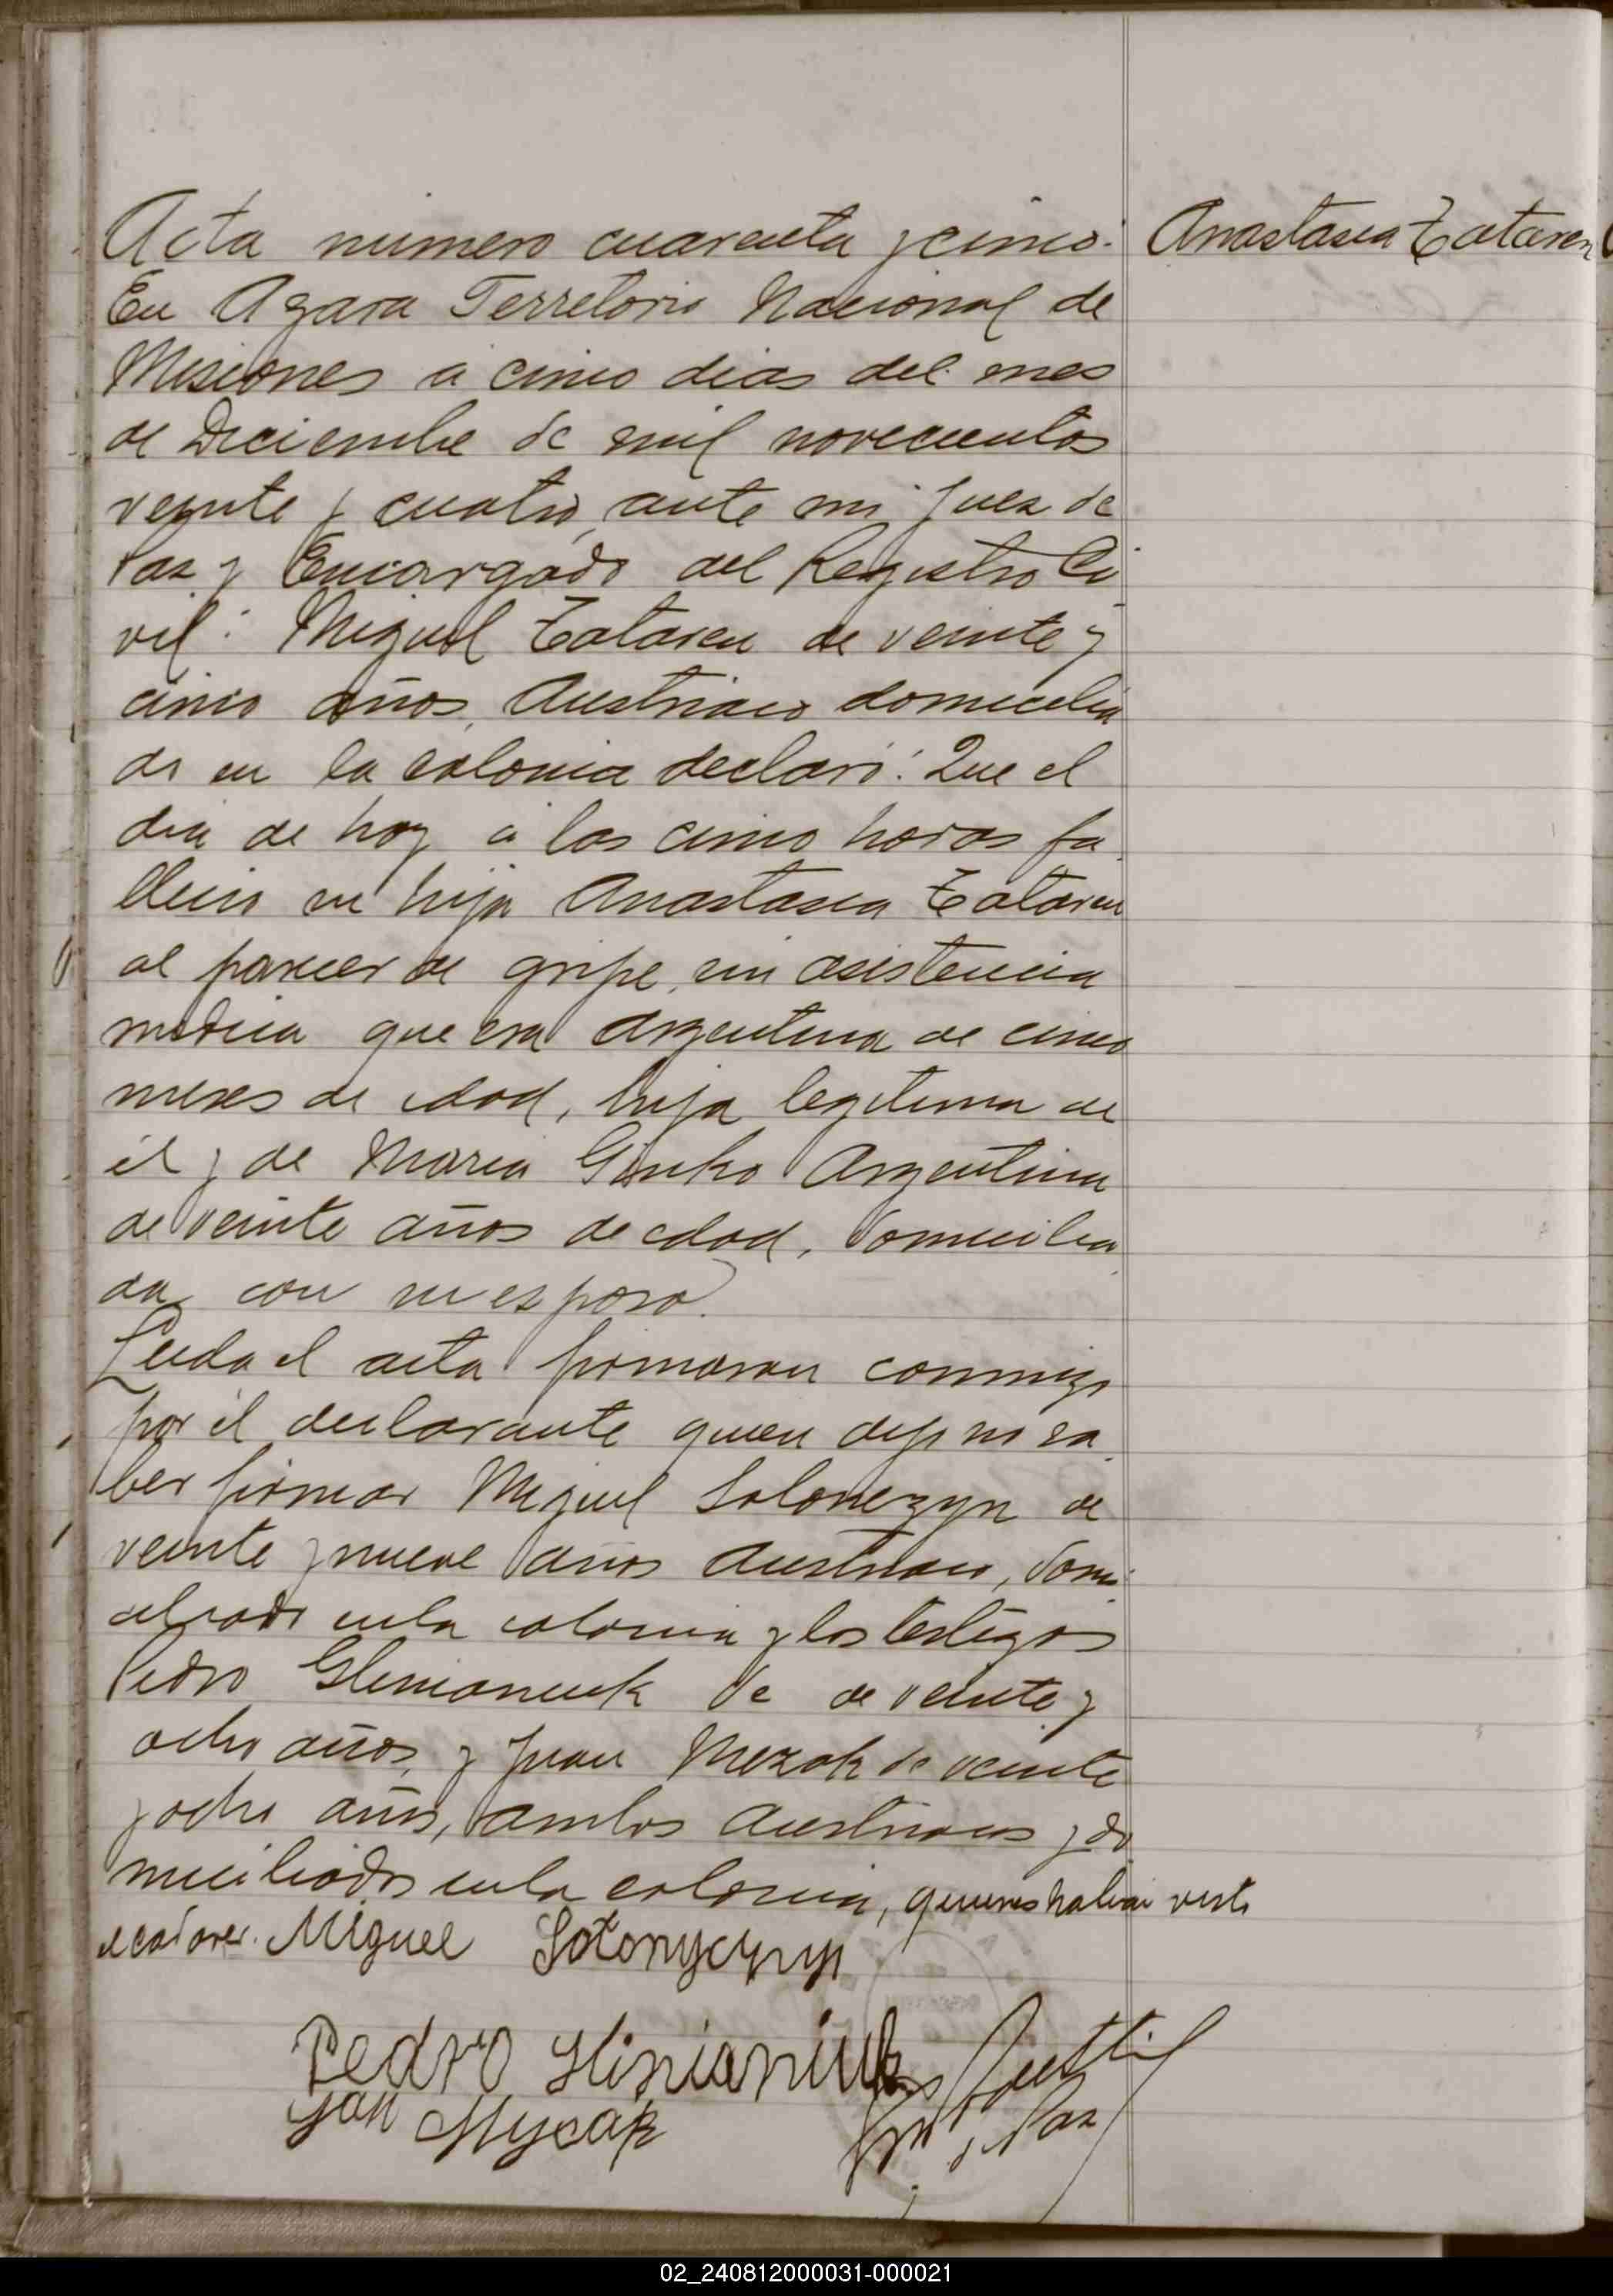 Acta número cuarenta y cinco.
Anastasia Tataren
En Azara Territorio Nacional de
Misiones a cinco dias del mes
de Diciembre de mil novecientos
veinte y cuatro, ante mi Juez de
Paz y Encargado del Registro Ci
vil: Miguel Tataren de veinte y
cinco años, Austriaco domicilia
do en la colonia declaró: Que el
dia de hoy a las cinco horas fa
lleció su hija Anastasia Tataren
al parecer de gripe, sin asistencia
medica que era Argentina de cinco
meses de edad, hija legitima de
él y de Maria Ginko Argentina
de veinte años de edad, domicilia
da con su esposo.
Leida el acta firmaron conmigo
por él declarante quien dijo no sa
ber firmar Miguel Solonezyn de
veinte y nueve años Austriaco, domi
ciliado en la colonia y los testigos
Pedro Gliniancuk de de veinte y
ocho años, y Juan Mezak de veinte
y ocho años, ambos Austriacos y do
miciliados en la colonia, quienes habian visto
el cadaver. Miguel Sotonyczyn
Pedro Hlinianiuk
Jan Mycak
Juez de Paz
02_240812000031-000021